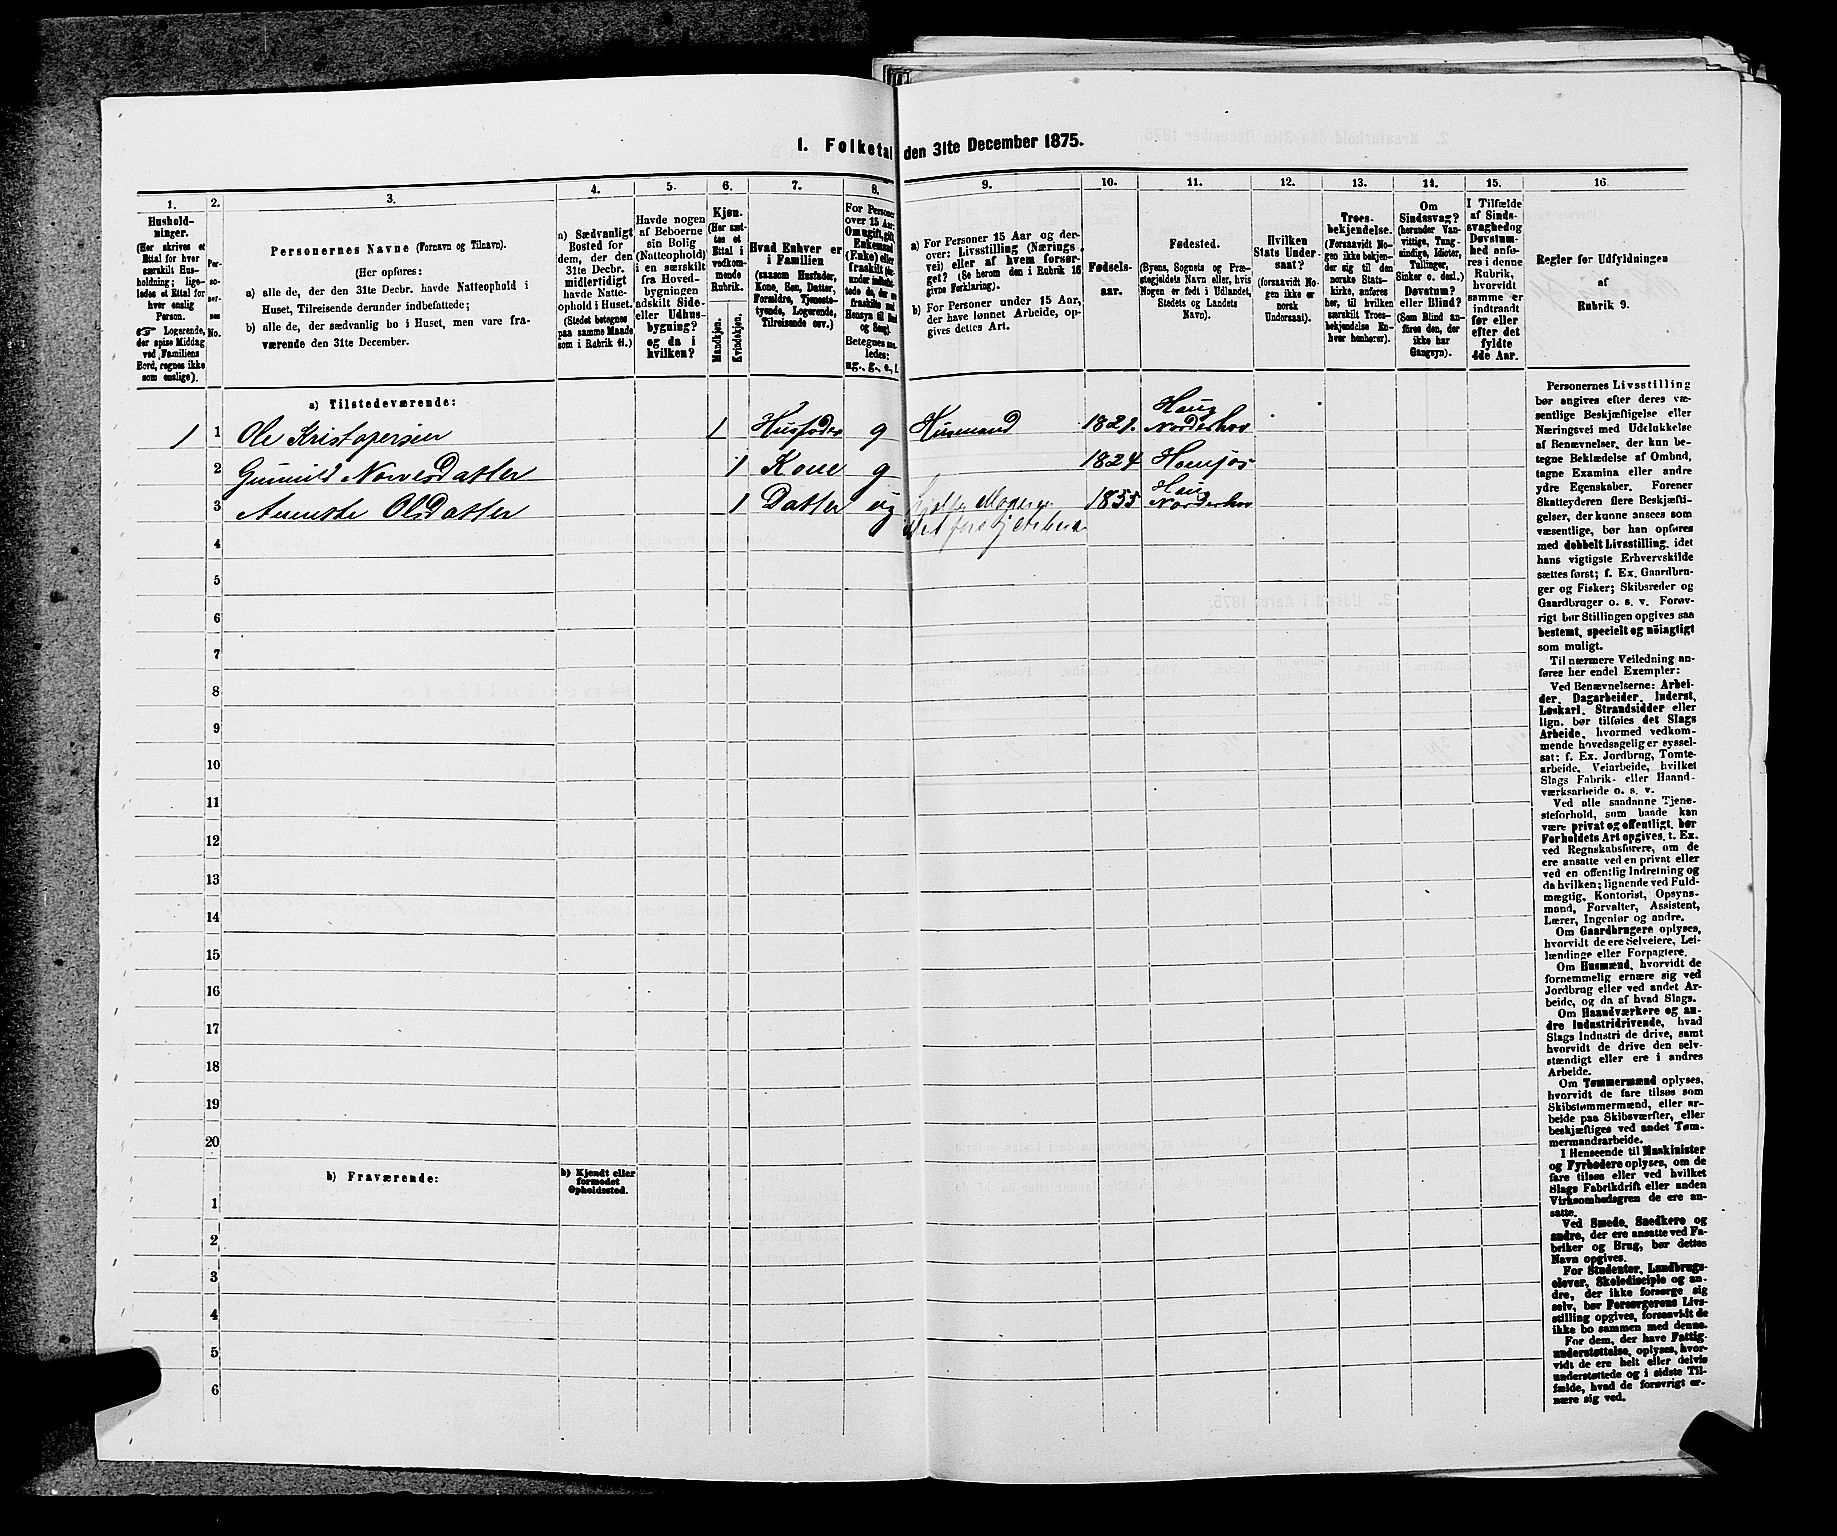 1. Folketal den 31te December 1875.
1.
2.
3.
4.
5.
6.
7.
8.
9.
10.
11.
12.
13.
14.
15.
16.
Hushold-
ninger.
(Her skrives et
Ettal for hver
særskilt Hus-
holdning; lige-
ledes et Ettal for
hver enslig
Person.
☞ Logerende,
der spise Middag
ved Familiens
Bord, regnes ikke
som enslige).
Per-
so-
ner-
nes
No.
Personernes Navne (Fornavn og Tilnavn).
(Her opføres:
a) alle de, der den 31te Decbr. havde Natteophold i
Huset, Tilreisende derunder indbefattede;
b) alle de, der sædvanlig bo i Huset, men vare fra-
værende den 31te December.
a) Sædvanligt
Bosted for
dem, der den
31te Decbr.
midlertidigt
havde Natte-
ophold i Huset.
(Stedet betegnes
paa samme Maade
som i Rubrik 11.)
Havde nogen
af Beboerne
sin Bolig
(Natteophold)
i en særskilt
fra Hoved-
bygningen
adskilt Side-
eller Udhus-
bygning?
og da i
hvilken?
Kjøn.
(Her sæt-
tes et
Ettal i
vedkom-
mende
Rubrik.
Mandkjøn.
Kvindekjøn.
Hvad Enhver er
i Familien
(saasom Husfader,
Kone, Søn, Datter,
Forældre, Tjeneste-
tyende, Logerende,
Tilreisende osv.)
For Personer
over 15 Aar:
Om ugift, gift,
Enkemand
(Enke) eller
fraskilt
Betegnes saa-
ledes:
ug., g., e., f.
a) For Personer 15 Aar og der-
over: Livsstilling (Nærings-
vei) eller af hvem forsør-
get? (Se herom den i Rubrik 16
givne Forklaring).
b) For Personer under 15 Aar,
der have lønnet Arbeide, op-
gives dettes Art.
Fødsels-
aar.
Fødested.
(Byens, Sognets og Præ-
stegjeldets Navn eller, hvis
Nogen er født i Udlandet,
Stedets og Landets
Navn).
Hvilken
Stats Under-
saat?
(forsaavidt No-
gen ikke er
norsk
Undersaat).
Troes-
bekjendelse.
(Forsaavidt No-
gen ikke bekjen-
der sig til den
norske Stats-
kirke, anføres
her, til hvilken
særskilt Troes-
bekjendelse En-
hver henhører).
Om
Sindssvag?
(herunder Van-
vittige, Tung-
sindige, Idioter,
Tullinger,
Sinker o. desl.)
Døvstum?
eller Blind?
(Som Blind an-
føres den, der
ikke har
Gangsyn).
I Tilfælde
af Sinds-
svaghed og
Døvstum-
hed anfø-
res i denne
Rubrik,
hvorvidt
samme er
indtraadt
før eller
efter det
fyldte
4de Aar.
Regler for Udfyldningen
af
Rubrik 9.
a) Tilstedeværende:
1 1 Ole Kristopersen 1 Husfader g Husmand 1821. Haug Norderhov
2 Gunnild Norvesdatter 1 Kone g 1824
3 Auneste Olsdatter 1 Datter ug 1855 Haug Norderhov
4
5
6
7
8
9
10
11
12
13
14
15
16
17
18
19
20
b) Fraværende:
b) Kjendt eller
formodet
Opholdssted.
1
2
3
4
5
6
Personernes Livsstilling
bør angives efter deres væ-
sentlige Beskjæftigelse eller
Næringsvei med Udelukkelse
af Benævnelser, der kun be-
tegne Beklædelse af Ombud,
tagne Examina eller andre
ydre Egenskaber. Forener
Skatteyderen flere Beskjæfti-
gelser, der kunne ansees som
væsentlige, bør han opføres
med dobbelt Livsstilling, idet
hans vigtigste Erhvervskilde
sættes først; f. Ex. Gaardbru-
ger og Fisker; Skibsreder og
Gaardbruger o. s. v. Forøv-
rigt bør Stillingen opgives saa
bestemt, specielt og nøiagtigt
som muligt.
Til nærmere Veiledning an-
føres her endel Exempler:
Ved Benævnelserne: Arbei-
der, Dagarbeider, Inderst,
Løskarl, Strandsidder eller
lign. bør tilføies det Slags
Arbeide, hvormed vedkom-
mende hovedsagelig er syssel-
sat; f. Ex. Jordbrug, Tomte-
arbeide, Veiarbeide, hvilket
Slags Fabrik- eller Haand-
værksarbeide o. s. v.
Ved alle saadanne Tjene-
steforhold, som baade kan
være privat og offentligt, bør
Forholdets Art opgives, t. Ex.
ved Regnskabsførere, om de
ere ansatte ved en privat eller
ved en offentlig Indretning og
da hvilken; lignende ved Fuld-
mægtig, Kontorist, Opsyns-
mand, Forvalter, Assistent,
Lærer, Ingeniør og andre.
Om Gaardbrugere oplyses,
hvorvidt de ere Selveiere, Lei-
lændinge eller Forpagtere.
Om Husmænd, hvorvidt de
fornemmelig ernære sig ved
Jordbrug eller ved andet Ar-
beide, og da af hvad Slags.
Om Haandværkere og an-
dre Industridrivende, hvad
Slags Industri de drive, samt
hvorvidt de drive den selv-
stændigt eller ere i andres
Arbeide.
Om Tømmermænd oplyses,
hvorvidt de fare tilsøs som
Skibstømmermænd, eller ar-
beide paa Skibsværfter, eller
beskjæftiges ved andet Tøm-
mermandsarbeide.
I Henseende til Maskinister
og Fyrbødere oplyses, om de
fare tilsøs eller ved hvilket
Slags Fabrikdrift eller anden
Virksomhedsgren de ere an-
satte.
Ved Smede, Snedkere og
andre, der ere ansatte ved Fa-
briker og Brug, bør dettes
Navn opgives.
For Studenter, Landbrugs-
elever, Skoledisciple og an-
dre, der ikke forsørge sig
selv, bør Forsørgerens Livs-
stilling opgives, forsaavidt de
ikke bo sammen med denne.
For dem, der have Fattig-
understøttelse, oplyses, hvor-
vidt de ere helt eller delvis
understøttede og i sidste Til-
fælde, hvad de forøvrigt er-
nære sig ved.